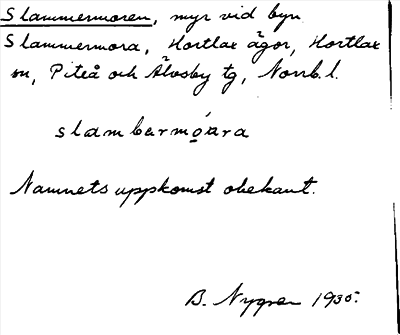 Slammermoren, myr vid byn
Slammermora, Hortlax ägor, Hortlax
sn, Piteå och Älvsby tg, Norrb. l.
slambarmo̱ara
Namnets uppkomst obekant.
B. Nygren 1935.